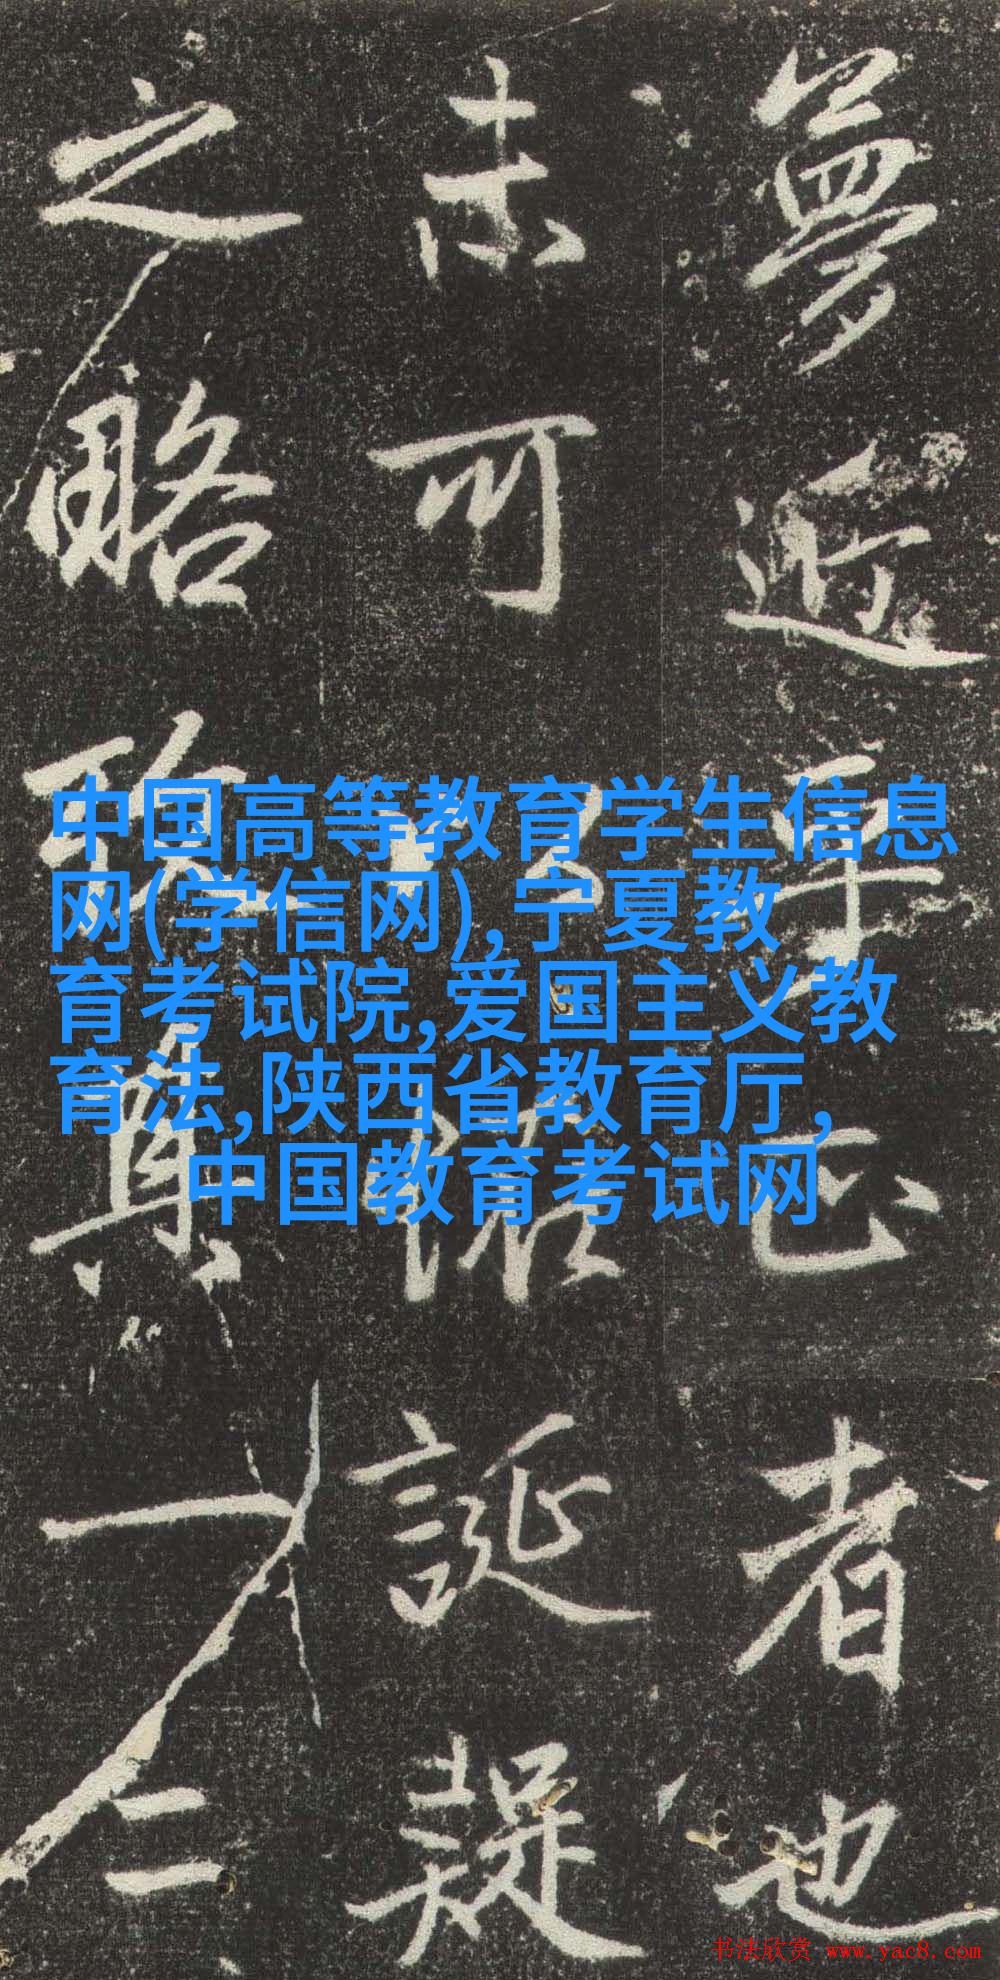 夢近乎正者也
未可誕疑
之略
一
中国高等教育学生信息
网(学信网),宁夏教
育考试院,爱国主义教
育法,陕西省教育厅,
中国教育考试网
书法欣赏 www.yac8.com